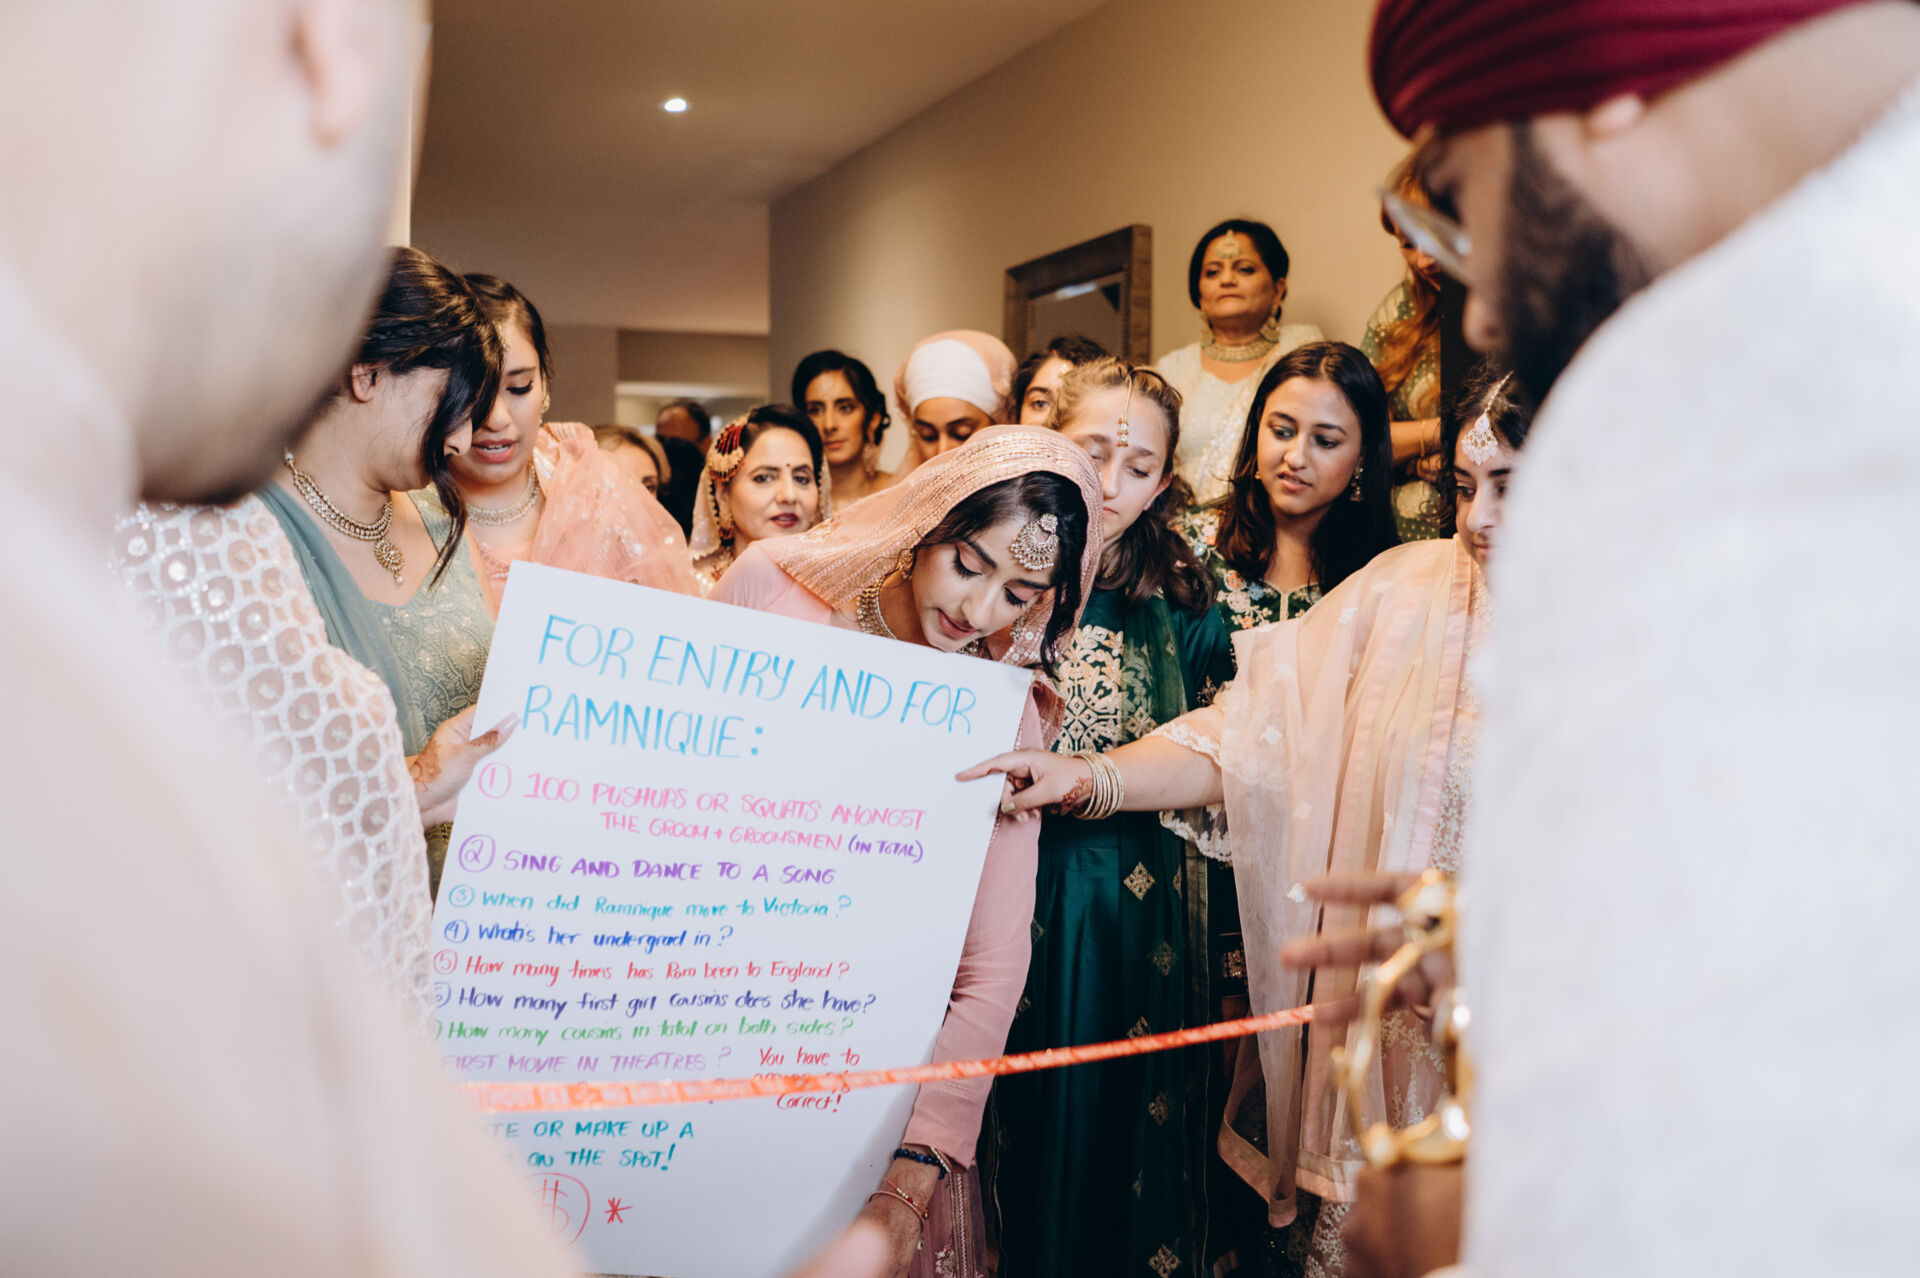 FOR ENTRY AND FOR
RAMNIQUE:
① 100 PUSHUPS OR SQUATS AMONGST
THE GROOM + GROOMSMEN (IN TOTAL)
② SING AND DANCE TO A SONG
③ When did Ramnique move to Victoria?
④ What's her undergrad in?
⑤ How many times has Ram been to England?
How many first girl cousins does she have?
How many cousins in total on both sides?
FIRST MOVIE IN THEATRES?
You have to
Correct!
OR MAKE UP A
ON THE SPOT!
$ *